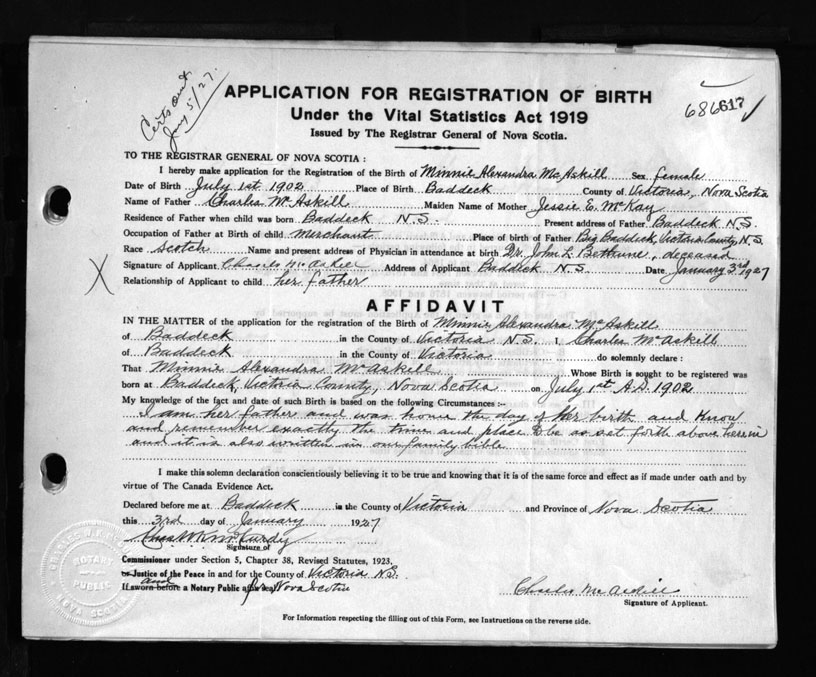 Certs out
Jany 5/27.
APPLICATION FOR REGISTRATION OF BIRTH
Under the Vital Statistics Act 1919
Issued by The Registrar General of Nova Scotia.
686617
TO THE REGISTRAR GENERAL OF NOVA SCOTIA :
I hereby make application for the Registration of the Birth of Minnie Alexandra McAskill Sex female
Date of Birth July 1st 1902 Place of Birth Baddeck County of Victoria, Nova Scotia
Name of Father Charles McAskill Maiden Name of Mother Jessie E. McKay
Residence of Father when child was born Baddeck N.S. Present address of Father Baddeck N.S.
Occupation of Father at Birth of child Merchant Place of birth of Father Big Baddeck, Victoria County, N.S.
Race Scotch Name and present address of Physician in attendance at birth Dr. John L Bethune, deceased
Signature of Applicant Charles McAskill Address of Applicant Baddeck N.S. Date January 3rd 1927
X Relationship of Applicant to child her father
AFFIDAVIT
IN THE MATTER of the application for the registration of the Birth of Minnie Alexandra McAskill
of Baddeck in the County of Victoria N.S. I, Charles McAskill
of Baddeck in the County of Victoria do solemnly declare :
That Minnie Alexandra McAskill Whose Birth is sought to be registered was
born at Baddeck, Victoria County, Nova Scotia on July 1st A.D. 1902
My knowledge of the fact and date of such Birth is based on the following Circumstances :-
I am her father and was home the day of her birth and know
and remember exactly the time and place to be as set forth above herein
and it is also written in our family bible
I make this solemn declaration conscientiously believing it to be true and knowing that it is of the same force and effect as if made under oath and by
virtue of The Canada Evidence Act.
Declared before me at Baddeck in the County of Victoria and Province of Nova Scotia
this 3rd day of January 1927
Signature of
Commissioner under Section 5, Chapter 38, Revised Statutes, 1923,
or Justice of the Peace in and for the County of Victoria N.S.
If sworn before a Notary Public and for Nova Scotia
Charles McAskill
Signature of Applicant.
NOTARY
PUBLIC
NOVA SCOTIA
For Information respecting the filling out of this Form, see Instructions on the reverse side.